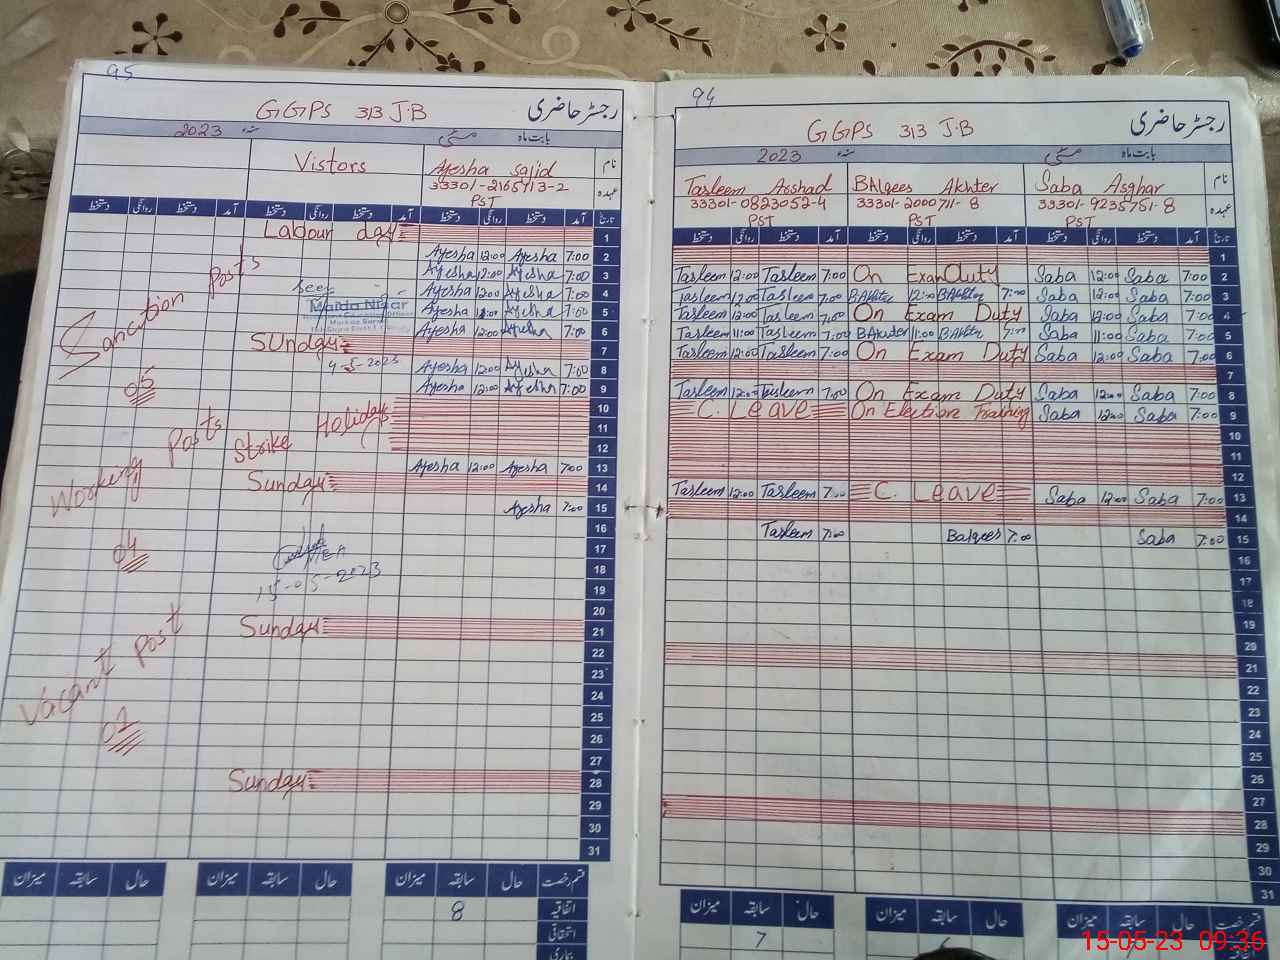 95
GGPS 313 J.B رجسٹر حاضری
2023 ء بابت ماہ مئی
Vistors Ayesha Sajid نام
33301-2165413-2 عہدہ
PST
دستخط روانگی دستخط آمد دستخط روانگی دستخط آمد دستخط روانگی دستخط آمد تاریخ
Labour day 1
Ayesha 12:00 Ayesha 7:00 2
Ayesha 12:00 Ayesha 7:00 3
Seen Ayesha 12:00 Ayesha 7:00 4
Ayesha Ayesha 7:00 5
Ayesha 12:00 Ayesha 7:00 6
Sunday 7
4-5-2023 Ayesha 12:00 Ayesha 7:00 8
Ayesha 12:00 Ayesha 7:00 9
10
Strike Holidays 11
12
Ayesha 12:00 Ayesha 7:00 13
Sunday 14
Ayesha 7:00 15
16
17
18
15-05-2023 19
20
Sunday 21
22
23
24
25
26
27
Sunday 28
29
30
31
Sanction Posts
05
Working Posts
04
Vacant Post
01
میزان سابقہ حال میزان سابقہ حال میزان سابقہ حال قسم رخصت
8 اتفاقیہ
استحقاقی
بیماری
94
GGPS 313 J.B رجسٹر حاضری
2023 ء بابت ماہ مئی
Tasleem Arshad BAlqees Akhter Saba Asghar نام
33301-0823052-4 33301-2000711-8 33301-9235751-8 عہدہ
PST PST PST
دستخط روانگی دستخط آمد دستخط روانگی دستخط آمد دستخط روانگی دستخط آمد تاریخ
1
Tasleem 12:00 Tasleem 7:00 On Exam Duty Saba 12:00 Saba 7:00 2
Tasleem 12:00 Tasleem 7:00 B.Akhter 12:00 B.Akhter 7:00 Saba 12:00 Saba 7:00 3
Tasleem 12:00 Tasleem 7:00 On Exam Duty Saba 12:00 Saba 7:00 4
Tasleem 11:00 Tasleem 7:00 B.Akhter 11:00 B.Akhter 7:00 Saba 11:00 Saba 7:00 5
Tasleem 12:00 Tasleem 7:00 On Exam Duty Saba 12:00 Saba 7:00 6
7
Tasleem 12:00 Tasleem 7:00 On Exam Duty Saba 12:00 Saba 7:00 8
C. Leave On Election Training Saba 12:00 Saba 7:00 9
10
11
12
Tasleem 12:00 Tasleem 7:00 C. Leave Saba 12:00 Saba 7:00 13
14
Tasleem 7:00 Balqees 7:00 Saba 7:00 15
16
17
18
19
20
21
22
23
24
25
26
27
28
29
30
31
میزان سابقہ حال میزان سابقہ حال میزان سابقہ حال قسم رخصت
7 اتفاقیہ
15-05-23 09:36